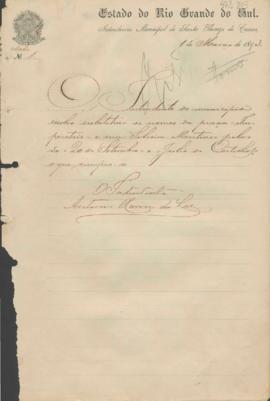 Estado do Rio Grande do Sul.
Intendencia Municipal de Santo
1 de Março de
Nº 1
O Intendente do municipio
resolve substituir os nomes da praça Im-
peratriz e rua Silveira Martins pelos
de 20 de Setembro e Julio de Castilhos
o que cumpra-se
O Intendente
Antonio Xavier da Luz